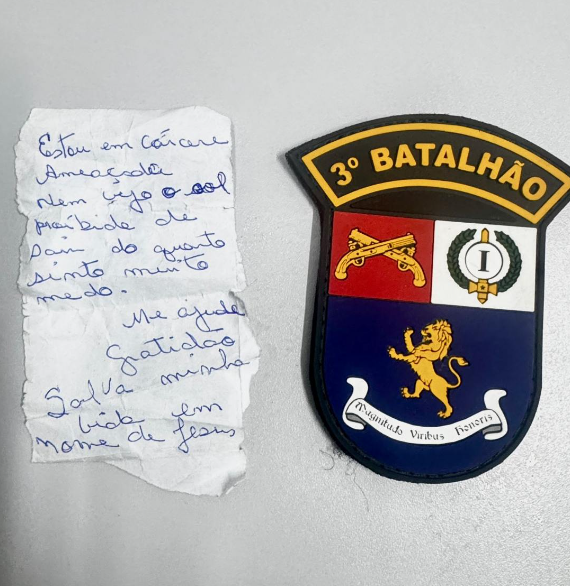 Estou em cárcere
Ameaçada
Nem vejo o sol
proibida de
Sair do quarto
sinto muito
medo.
Me ajude
Gratidão
Salva minha
vida em
nome de Jesus
3º BATALHÃO
I
Magnitudo Viribus Honoris